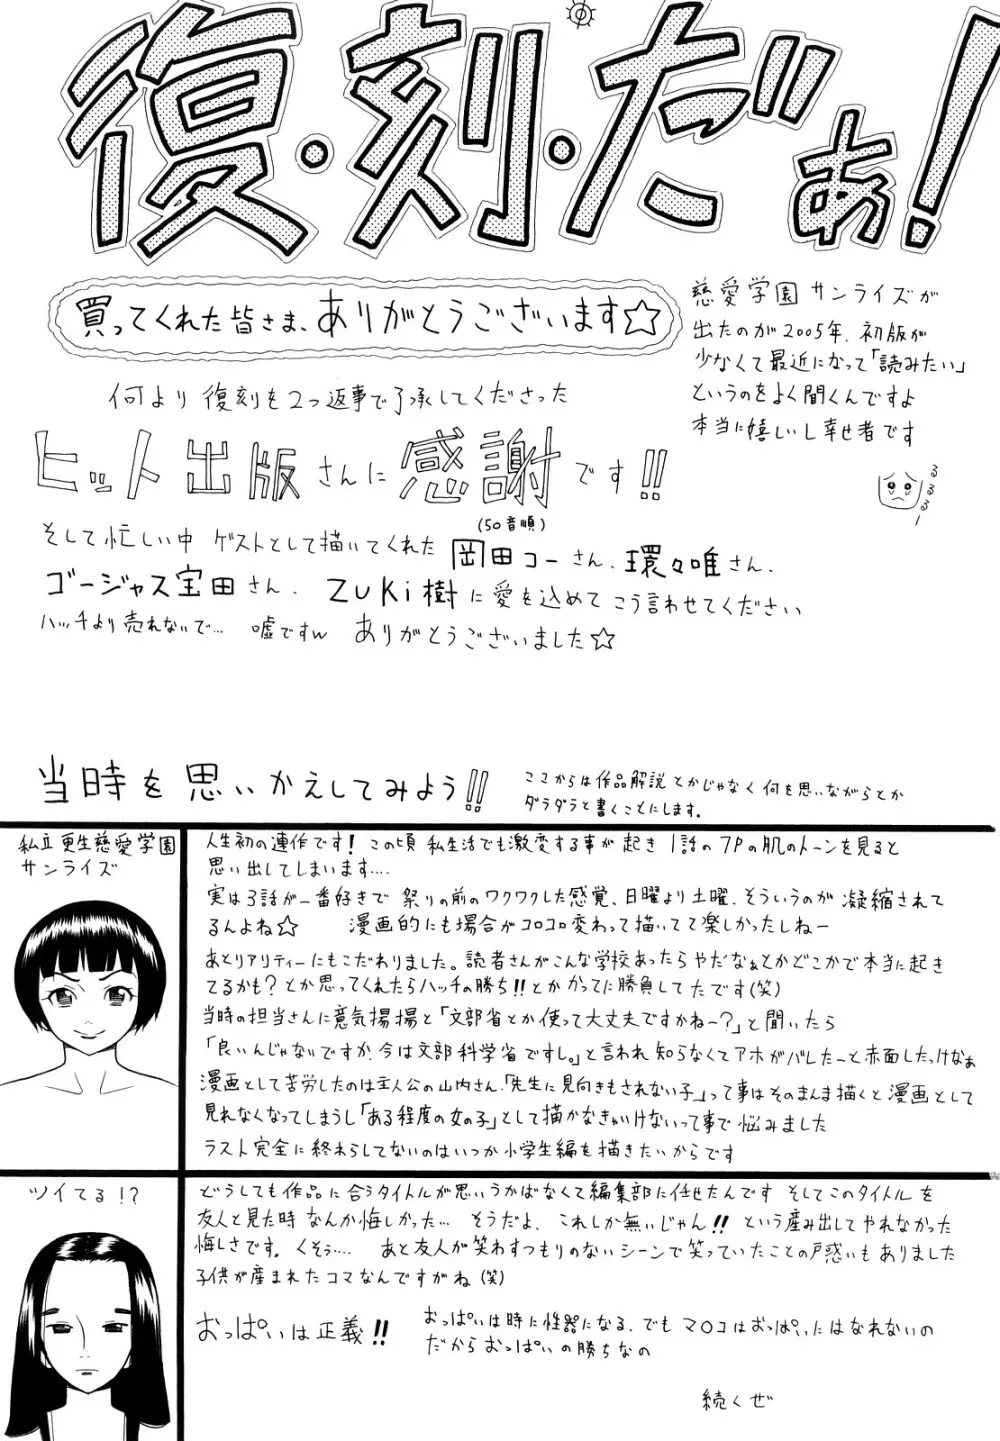 復・刻・だぁ!
買ってくれた皆さま、ありがとうございます☆
慈愛学園サンライズが
出たのが2005年、初版が
少なくて最近になって「読みたい」
というのをよく聞くんですよ
本当に嬉しいし幸せ者です
るるるー
何より復刻を2つ返事で了承してくださった
ヒット出版さんに感謝です!!
(50音順)
そして忙しい中 ゲストとして描いてくれた 岡田コーさん、環々唯さん、
ゴージャス宝田さん、 ZUKi樹に愛を込めてこう言わせてください
ハッチより売れないで… 嘘ですw ありがとうございました☆
当時を思いかえしてみよう!!
ここからは作品解説とかじゃなく何を思いながらとか
ダラダラと書くことにします。
私立更生慈愛学園
サンライズ
人生初の連作です! この頃 私生活でも激変する事が起き 1話の7Pの肌のトーンを見ると
思い出してしまいます....
実は3話が一番好きで 祭りの前のワクワクした感覚、日曜より土曜、そういうのが凝縮されて
るんよね☆ 漫画的にも場合がコロコロ変わって描いてて楽しかったしねー
あとリアリティーにもこだわりました。読者さんがこんな学校あったらやだなぁとかどこかで本当に起き
てるかも?とか思ってくれたらハッチの勝ち!!とかかってに勝負してたです(笑)
当時の担当さんに意気揚揚と「文部省とか使って大丈夫ですかねー?」と聞いたら
「良いんじゃないですか、今は文部科学省ですし。」と言われ知らなくてアホがバレたーと赤面したっけなぁ
漫画として苦労したのは主人公の山内さん、「先生に見向きもされない子」って事はそのまんま描くと漫画として
見れなくなってしまうし「ある程度の女の子」として描かなきゃいけないって事で悩みました
ラスト完全に終わらしてないのはいつか小学生編を描きたいからです
ツイてる!?
どうしても作品に合うタイトルが思いうかばなくて編集部に任せたんです そしてこのタイトルを
友人と見た時なんか悔しかった… そうだよ、これしか無いじゃん!! という産み出してやれなかった
悔しさです。くそぅ.... あと友人が笑わすつもりのないシーンで笑っていたことの戸惑いもありました
子供が産まれたコマなんですがね(笑)
おっぱいは正義!!
おっぱいは時に性器になる、でもマ○コはおっぱいにはなれないの
だからおっぱいの勝ちなの
続くぜ